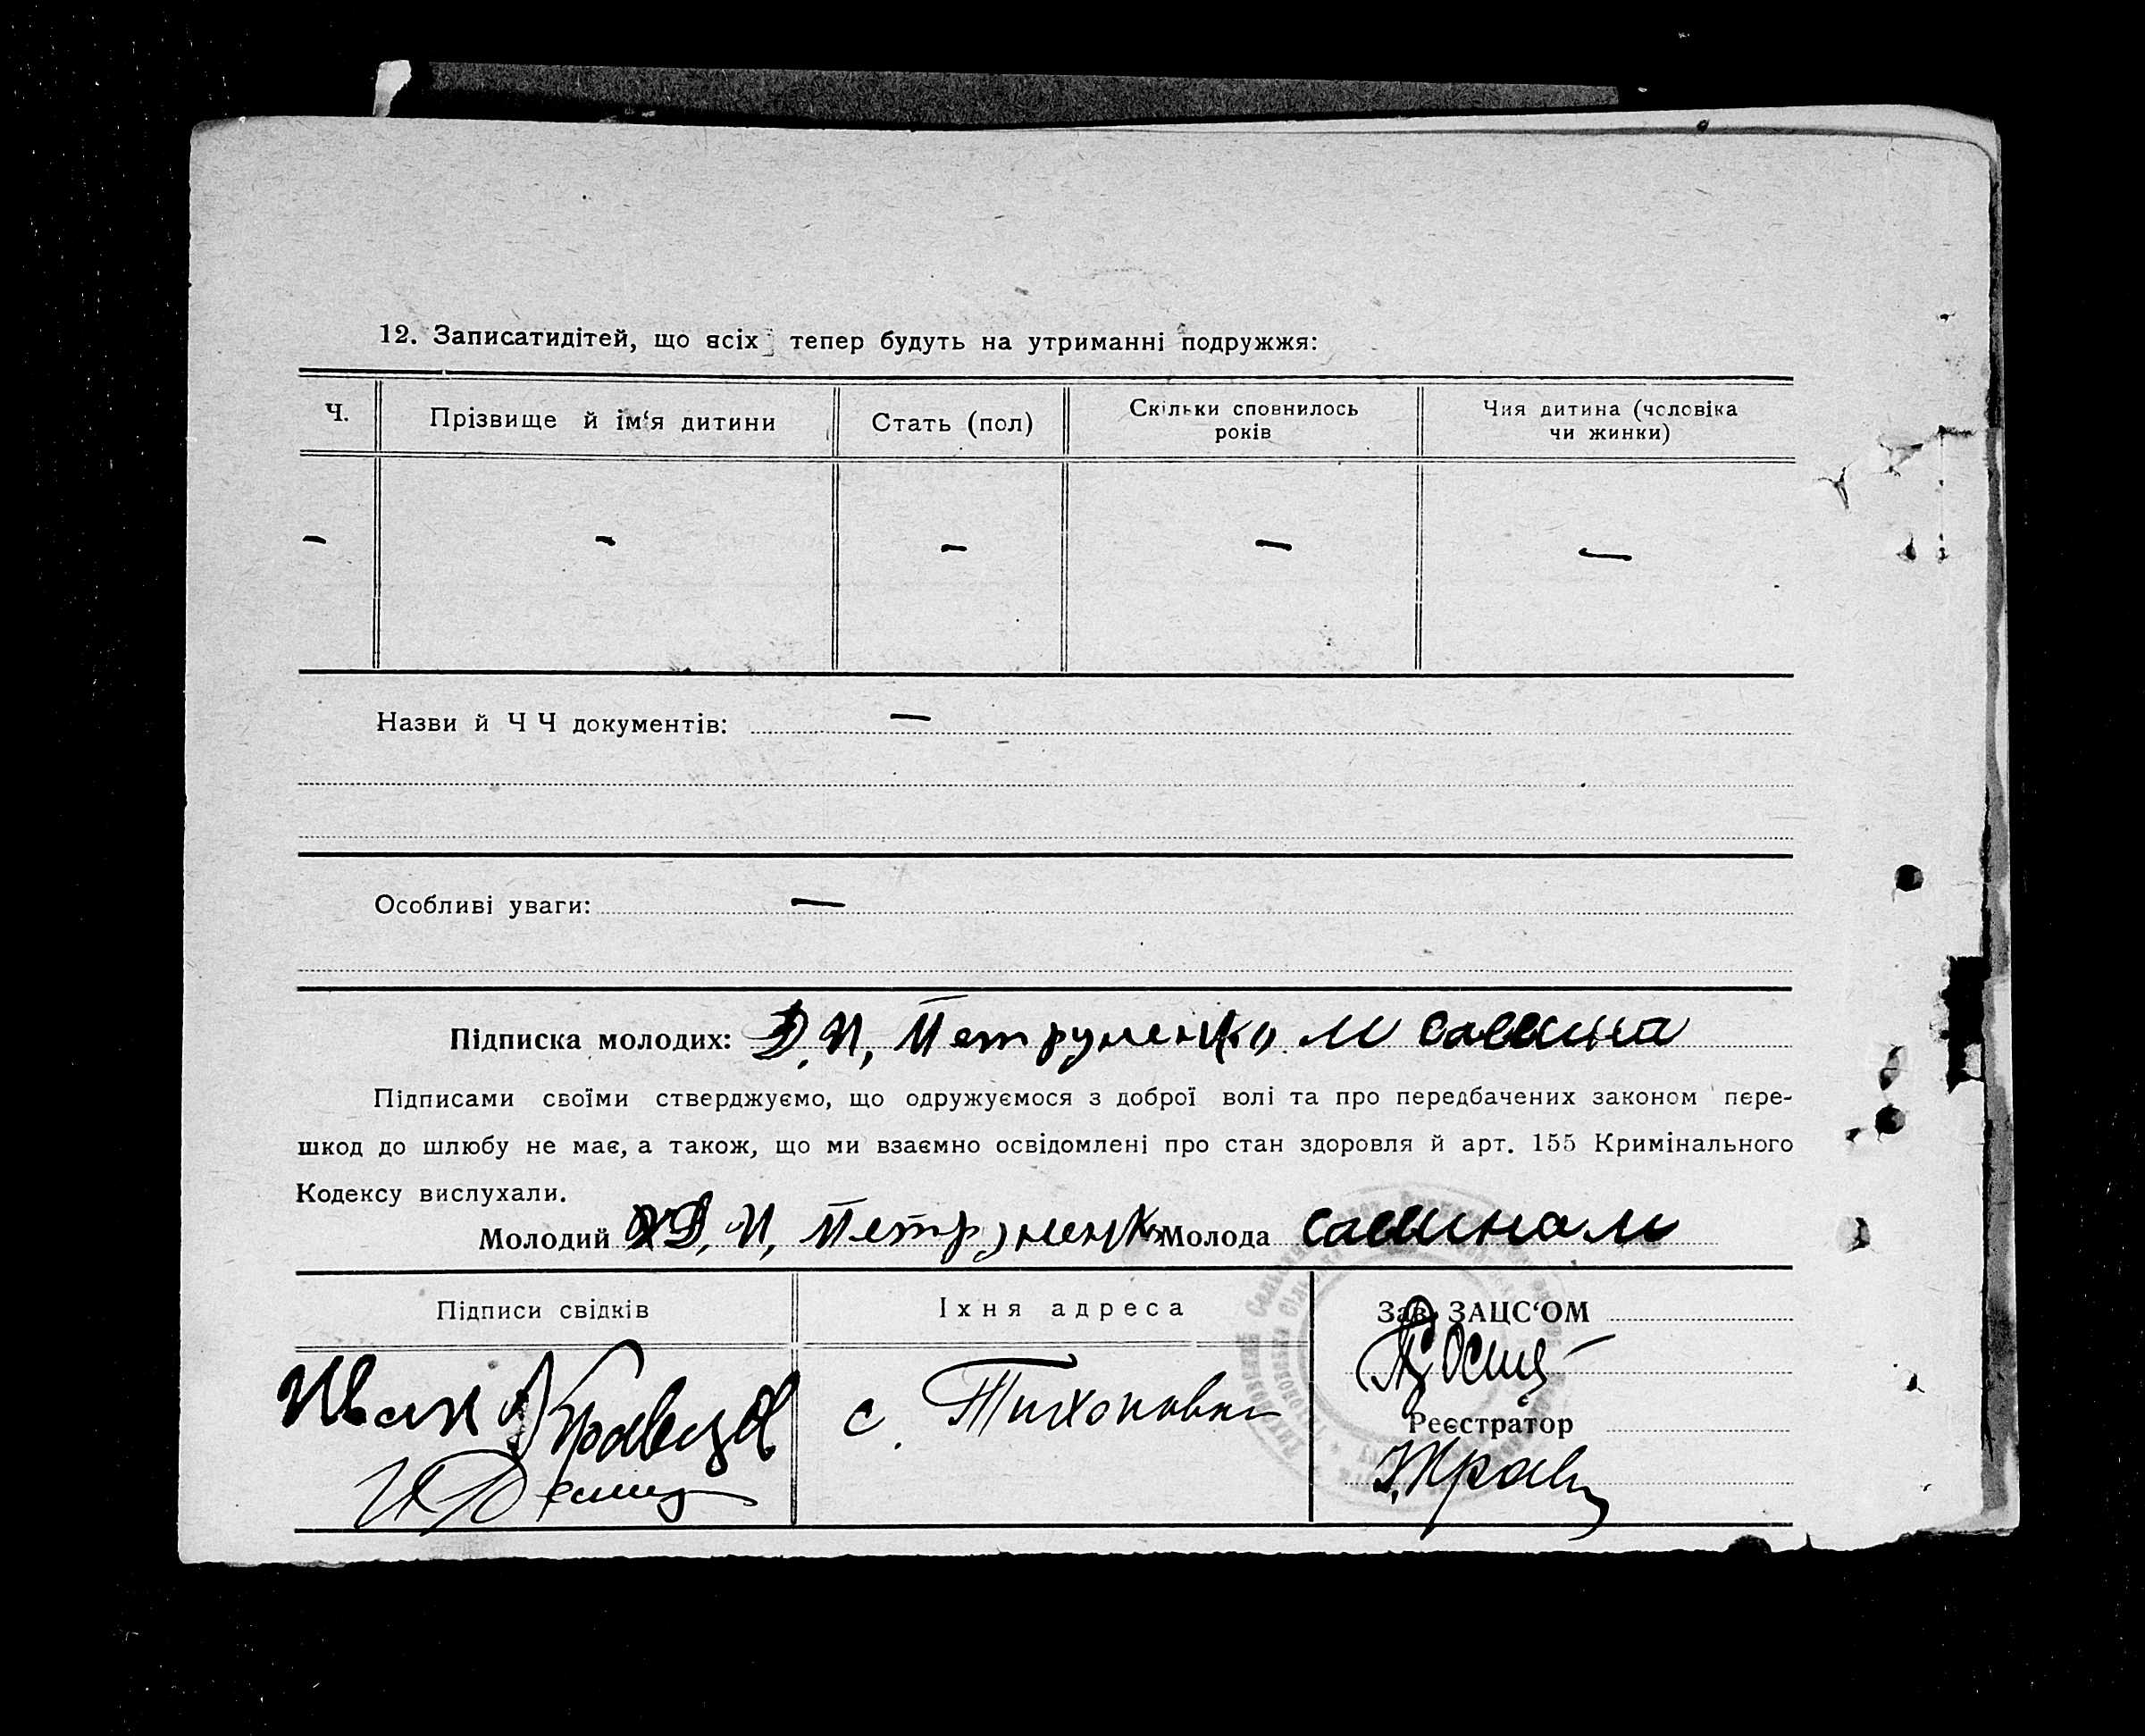 12. Записатидітей, що всіх тепер будуть на утриманні подружжя:
Ч. Прізвище й ім‘я дитини Стать (пол) Скільки сповнилось років Чия дитина (чоловіка чи жинки)
— — — — —
Назви й Ч Ч документів: —
Особливі уваги: —
Підписка молодих: Д. И, Петруненко. М Савина
Підписами своїми стверджуємо, що одружуємося з доброї волі та про передбачених законом пере-
шкод до шлюбу не має, а також, що ми взаємно освідомлені про стан здоровля й арт. 155 Кримінального
Кодексу вислухали.
Молодий Д, И, Петруненк Молода Савина М
Підписи свідків Їхня адреса Зав. ЗАЦС‘ОМ
Иван Кравцов с. Тихоновка
Реєстратор